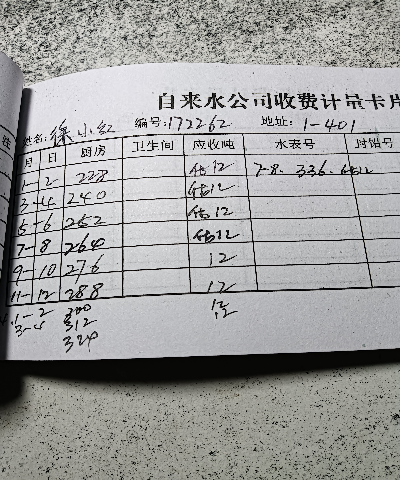 自来水公司收费计量卡片
姓名: 徐小红 编号: 172262 地址: 1-401
月 日 厨房 卫生间 应收吨 水表号 封铅号
1-2 228 估12 7-8. 336.
3-4 240 估12
5-6 252 估12
7-8 264 估12
9-10 276 12
11-12 288 12
1-2 300 12
3-4 312
324